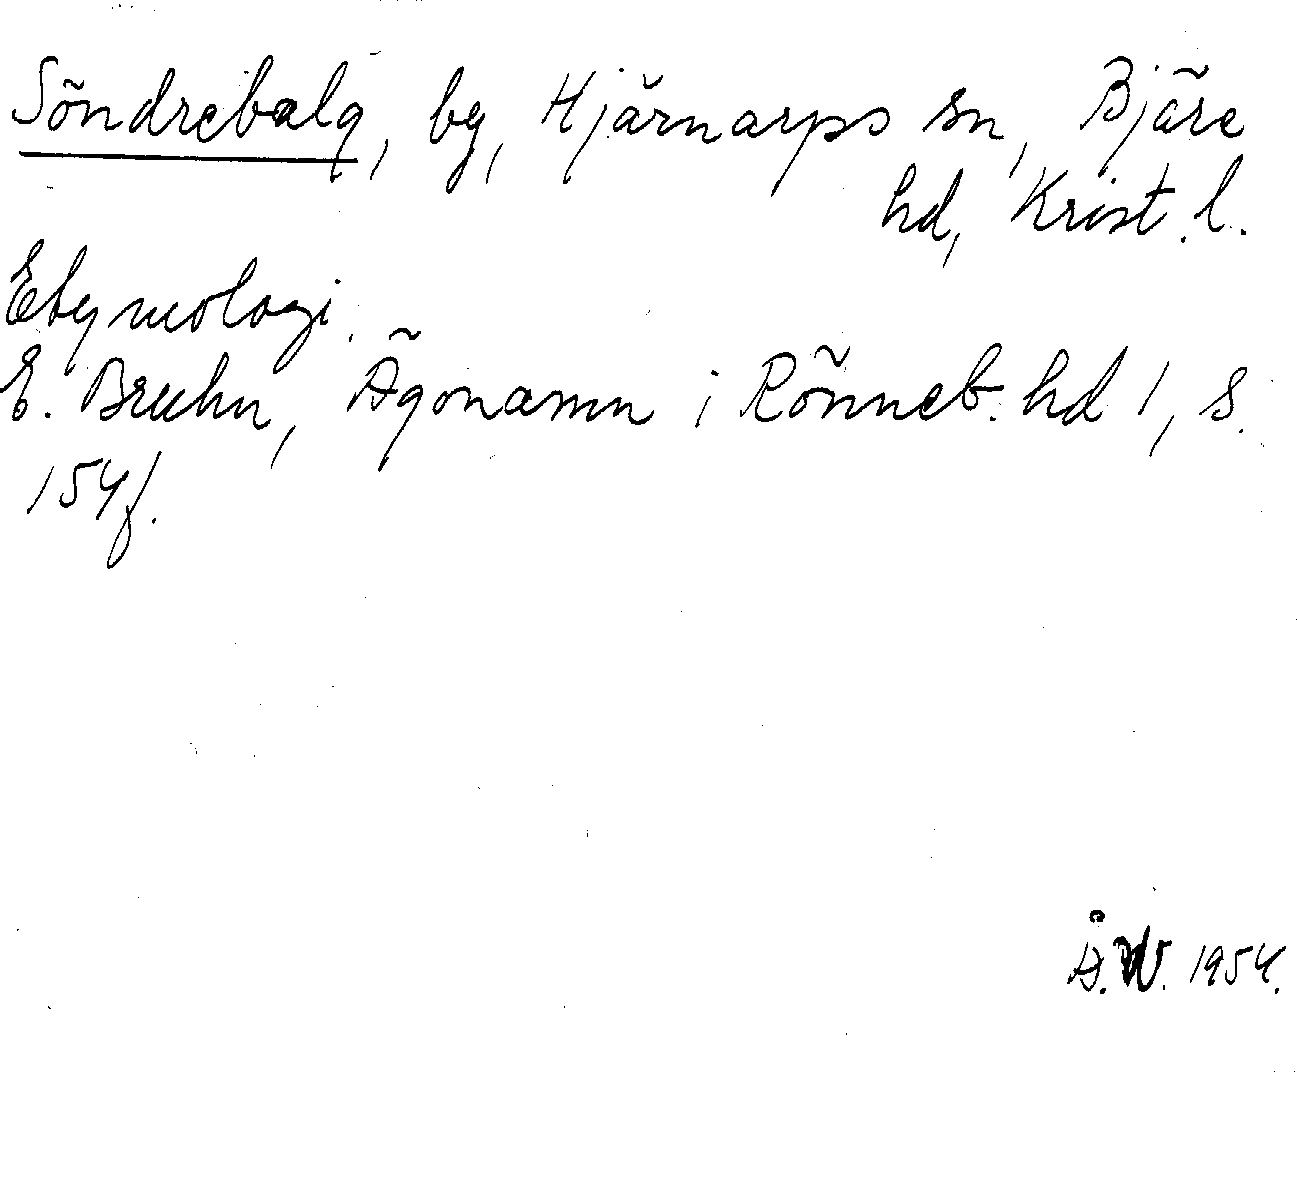 Söndrebalg, by, Hjärnarps sn, Bjäre
hd, Krist. l.
Etymologi.
E. Bruhn, Ägonamn i Rönneb. hd 1, s.
154f.
Å.W. 1954.